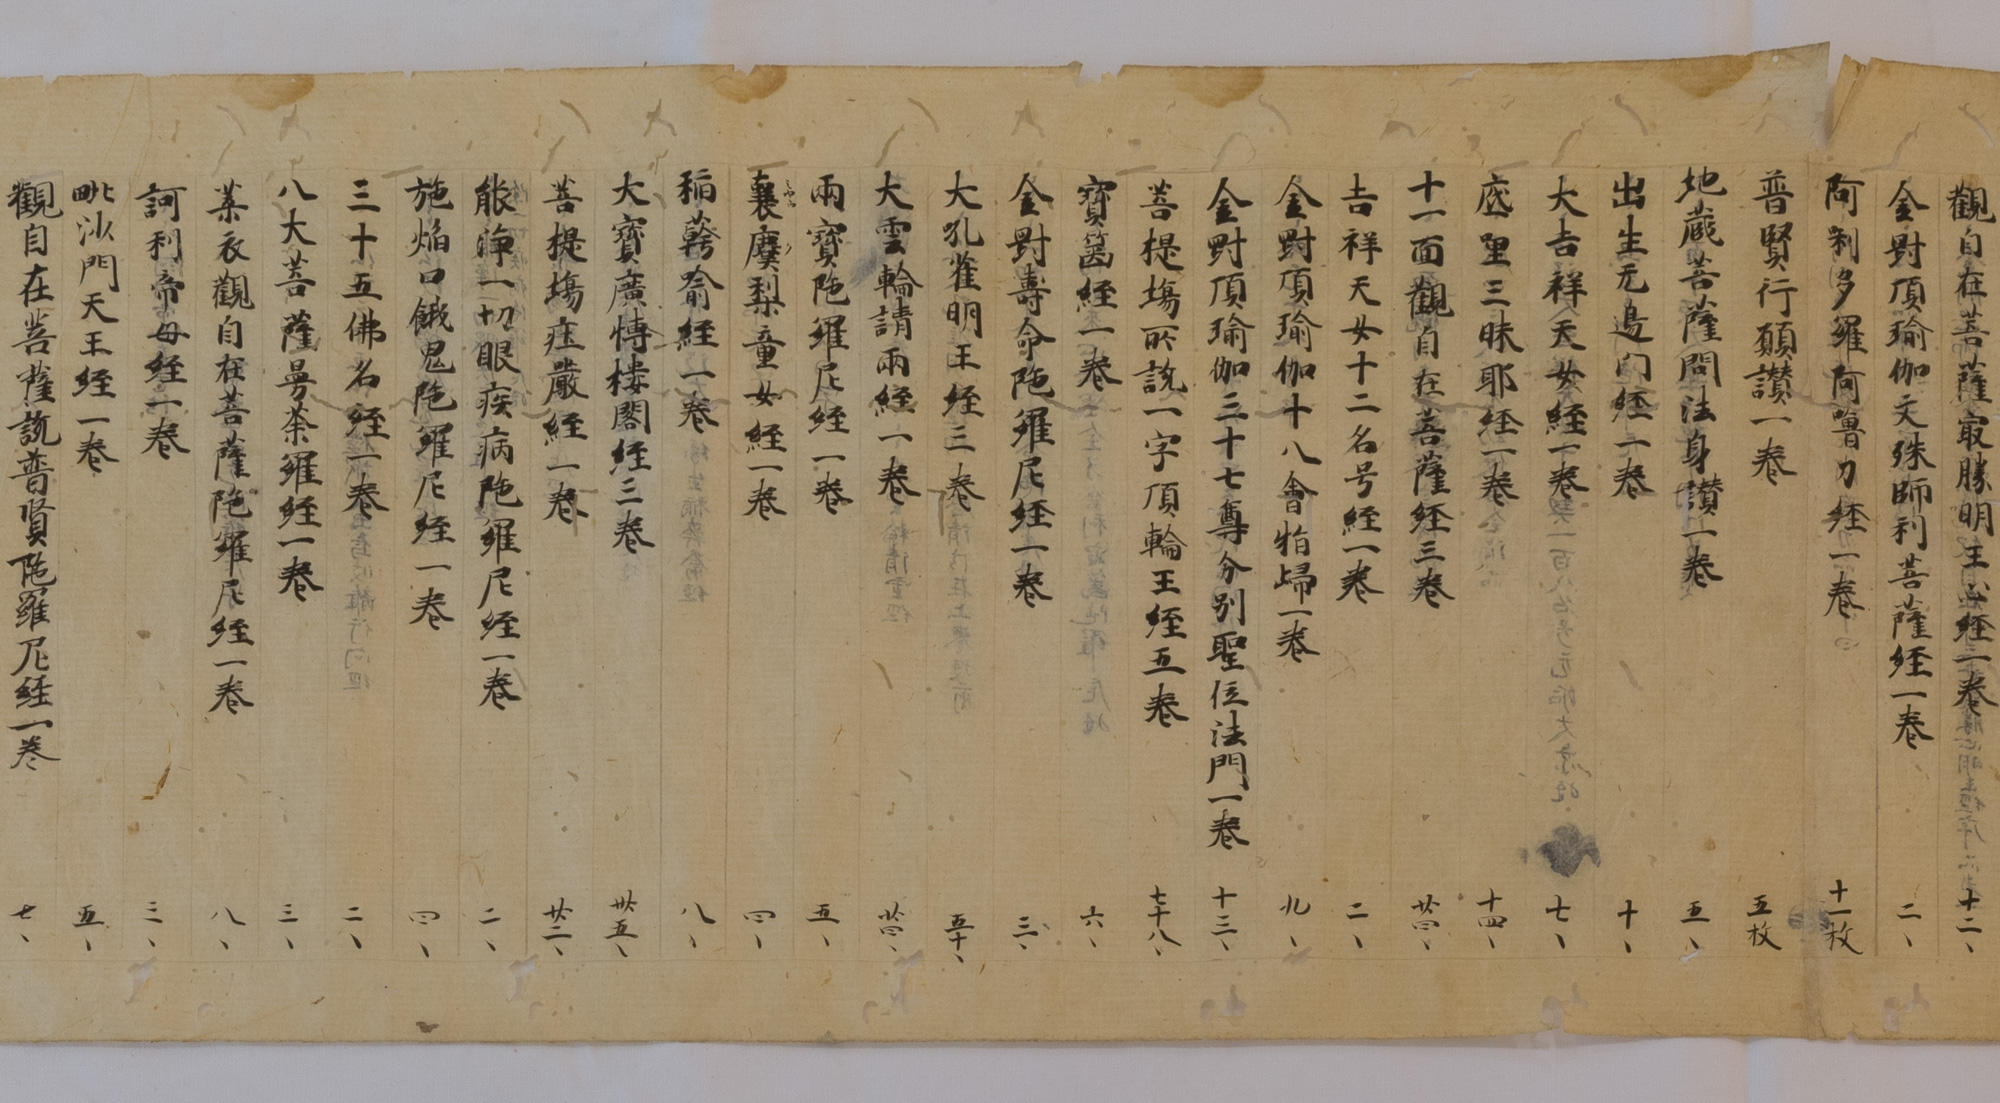 觀自在菩薩冣勝明王心經一巻 十二、
金對頂瑜伽文殊師利菩薩經一巻 二、
阿唎多羅阿嚕力經一巻 十一枚
普賢行願讃一巻 五枚
地蔵菩薩問法身讃一巻 五、
出生无邊门經一巻 十、
大吉祥天女經一巻 七、
底里三昧耶經一巻 十四、
十一面觀自在菩薩經三巻 廿四、
吉祥天女十二名号經一巻 二、
金對頂瑜伽十八會指歸一巻 九、
金對頂瑜伽三十七尊分別聖位法門一巻 十三、
菩提塲所說一字頂輪王經五巻 七十八、
寳篋經一巻 六、
金對壽命陁羅尼經一巻 三、
大孔雀明王經三巻 五十、
大雲輪請雨經一巻 廿四、
雨寳陁羅尼經一巻 五、
襄麌梨童女經一巻 四、
稲𦼮喻經一巻 八、
大寳廣愽楼閣經三巻 卅五、
菩提塲莊嚴經一巻 廿二、
能浄一切眼疾病陁羅尼經一巻 二、
施焔口餓鬼陁羅尼經一巻 四、
三十五佛名經一巻 二、
八大菩薩曼荼羅經一巻 三、
葉衣觀自在菩薩陁羅尼經一巻 八、
訶利帝母經一巻 三、
毗沙門天王經一巻 五、
觀自在菩薩說普賢陁羅尼經一巻 七、